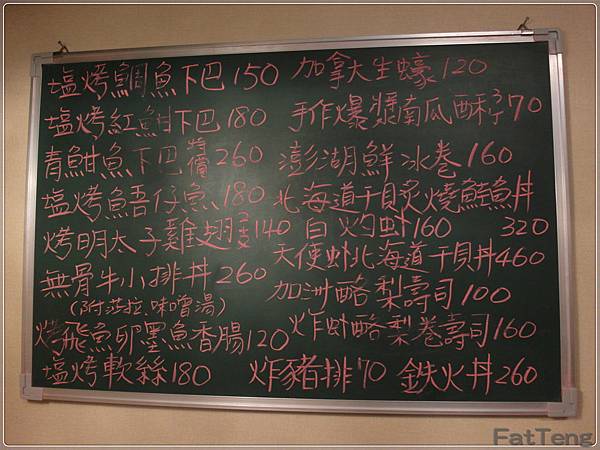 塩烤鯛魚下巴150
塩烤紅魽下巴180
青魽魚下巴特價260
塩烤魚吾仔魚180
烤明太子雞翅2隻140
無骨牛小排丼260
(附莎拉.味噌湯)
烤飛魚卵墨魚香腸120
塩烤軟絲180
加拿大生蠔120
手作爆漿南瓜酥3個70
澎湖鮮冰卷160
北海道干貝炙燒鮭魚丼
320
白灼蚶160
天使蚶北海道干貝丼460
加洲酪梨壽司100
炸蚶酪梨卷壽司160
炸豬排70
鉄火丼260
FatTeng